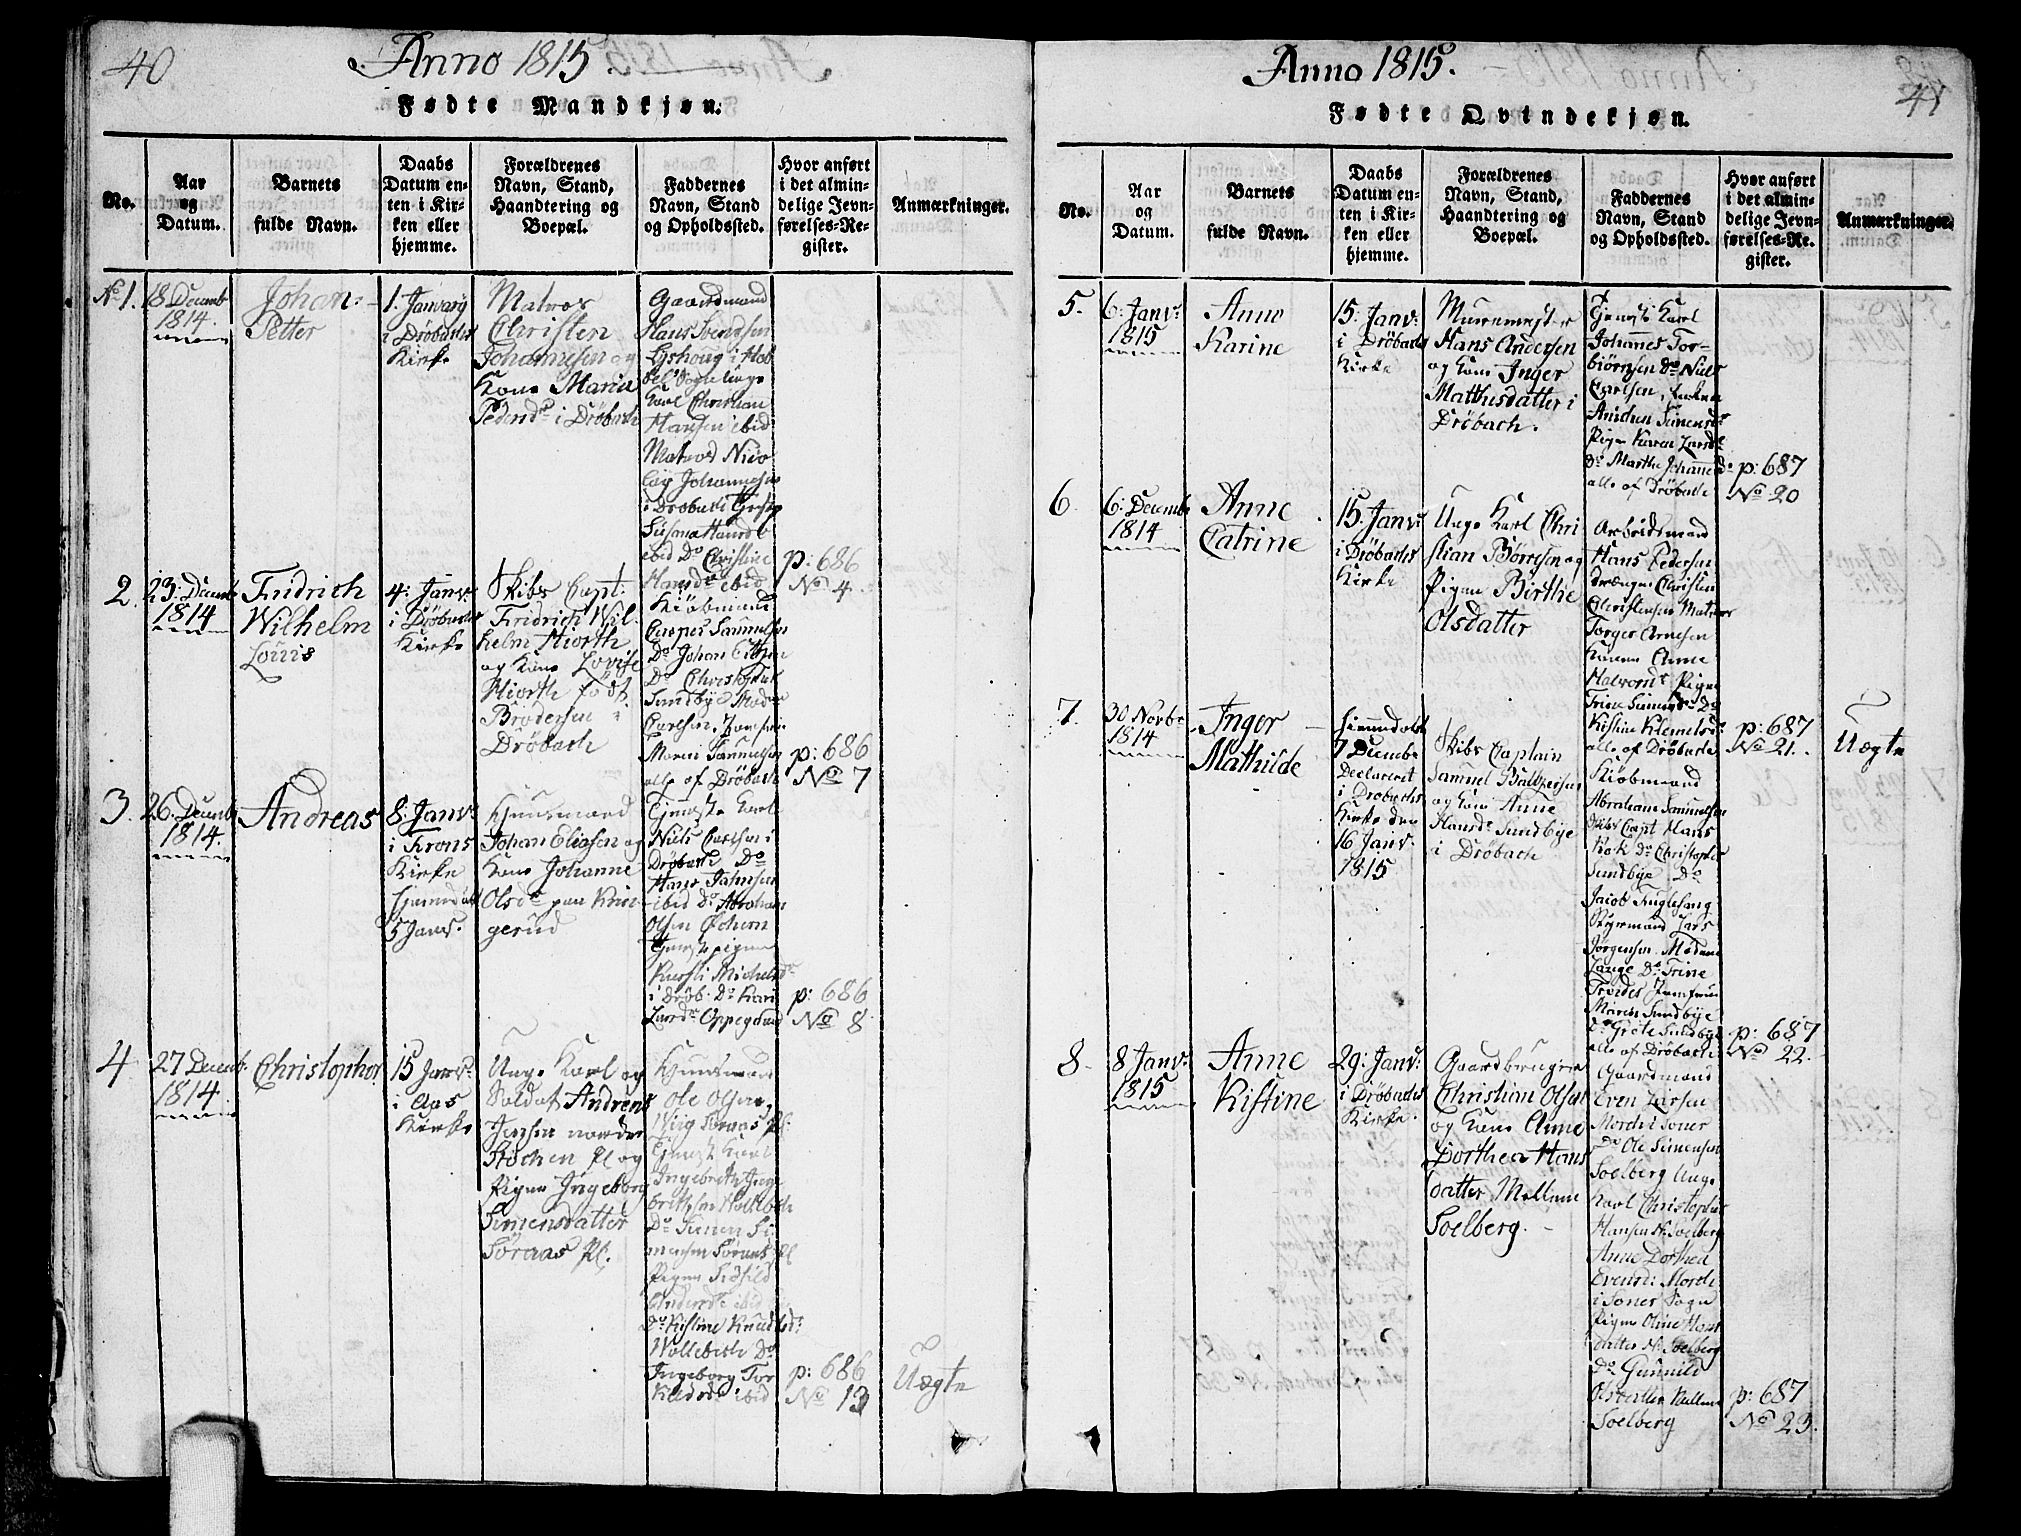 40
Anno 1815.
Fødte Mandkjøn.
No.
Aar
og
Datum.
Barnets
fulde Navn.
Daabs
Datum en-
ten i Kir-
ken eller
hjemme.
Forældrenes
Navn, Stand,
Haandtering og
Boepæl.
Faddernes
Navn, Stand
og Opholdssted.
Hvor anført
i det almin-
delige Jevn-
førelses-Re-
gister.
Anmærkninger.
No 1.
8 Decemb
1814.
Johan
Petter
1. Januarij
i Drøbachs
Kirke
Matros
Christen
Johannesen og
Kone Maria
Peders Dr i Drøbach
Gaardmand
Hans Svendsen
i Hob
bel Sogn Unge
Karl Christian
Hansen ibid
Matros Nico
lay Johannesen
i Drøbach
ibid Do Christine
Hansdr ibid
p: 686
No 4.
2.
23: Decemb
1814
Fridrich
Wilhelm
Louis
4: Janv:
i Drøbachs
Kirke
Skibs Capt:
Fridrich Wil-
helm Hiorth
og Kone Lovise
Hiorth født
Brodersen i
Drøbach
Kiøbmand
Casper Samuelsen
Do Johan
Do Christopher
Sundbye Madme
Carlsen, Jomfrue
Maren Samuelsen
alle af Drøbach
p: 686
No 7
3.
26. Decemb
1814.
Andreas
8: Janv:
i Krons
Kirke
hjemdøbt
5 Janv.
Huusmand
Johan Eliasen og
Kone Johanne
Olsdr paa
gerud
Tjeneste Karl
Niels Carlsen i
Drøbach Do
Hans
ibid Do Abraham
Olsen
Tjenste pigen
Michelsdr
i Drøb. Do Kari
Larsdr Oppegaard
p: 686
No 8
4
27 Decemb.
1814.
Christopher
15 Janv:
i Aas
Kirke
Unge Karl og
Soldat Andreas
Jensen nordre
Pl og
Pigen Ingeborg
Simensdatter
Søraas Pl.
Huusmand
Ole Olsen
Søraas Pl.
Tjenst Karl
Ingebreth Inge
brethsen Wollebech
Do Simen Si
mensen Søraas Pl
Pigen
Andersdr ibid
Do Kistine Knudsdr:
Wollebech Do
Ingeborg Tor
ibid
p: 686
No 13
Uægte
41
Anno 1815.
Fødte Qvindekjøn.
No.
Aar
og
Datum.
Barnets
fulde Navn.
Daabs
Datum en-
ten i Kir-
ken eller
hjemme.
Forældrenes
Navn, Stand,
Haandtering og
Boepæl.
Faddernes
Navn, Stand
og Opholdssted.
Hvor anført
i det almin-
delige Jevn-
førelses-Re-
gister.
Anmærkninger.
5.
6: Janv:
1815
Anne
Karine
15: Janv:
i Drøbachs
Kirke
Muremester
Hans Andersen
og Kone Inger
Mathisdatter i
Drøbach.
Tjenst Karl
Johannes Tor-
biørnsen Do Niels
Carlsen, Enken
Anichen Simensdr
Pigen Karen Larsdr
Do Marthe Johannesdr
alle af Drøbach
p: 687
No 20
6.
6: Decemb
1814
Anne
Catrine
15: Janv:
i Drøbachs
Kirke
Unge Karl Chri
stian Børresen og
Pigen Birthe
Olsdatter
Arbeidsmand
Hans Pedersen
Drengen Christen
Christensen Matros
Torger Arnesen
Konen Anne
Halvorsdr Pigen
Trine Simensdr Do
Kistine Klemetsdr
alle af Drøbach
p: 687
No 21.
Uægte
7.
30 Novbr
1814
Inger
Mathilde
hiemmdøbt
7 Decembr
Declareret
i Drøbachs
Kirke den
16 Janv:
1815
Skibs Captain
Samuel Balthersen
og Kone Anne
Hansdr Sundbye
i Drøbach
Kiøbmand
Abraham Samuelsen
Skibs Capt Hans
Kok Do Christopher
Sundbye Do
Jacob Fuglesang
Styrmand Lars
Jørgensen. Madame
Lange Do Trine
Jomfrue
Maren Sundbye
Do Grete Sundbye
alle af Drøbach
p: 687
No 22.
8.
8 Janv:
1815
Anne
Kistine
29: Janv:
i Drøbachs
Kirke.
Gaardbruger
Christian Olsen
og Kone Anne
Dorthea Hans
datter Mellem
Soelberg.
Gaardmand
Even Larsen
Morch i Soner
Do Ole Simensen
Soelberg Unge
Karl Christopher
Hansen N. Soelberg
Anne Dorthea
Evensd: Morch
i Soner Sogn
Pigen Oline Hans
datter N. Soelberg
Do Gunnild
Olsdatter Mellem
Soelberg
p: 687
No 23.